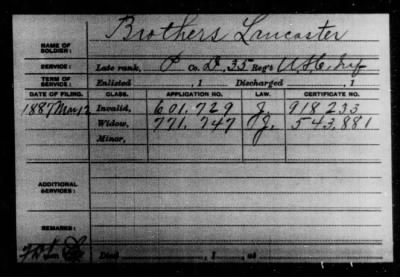 Brothers, Lancaster
NAME OF SOLDIER:
SERVICE: Late rank, P Co. D, 35 Reg't U.S.C. Inf
TERM OF SERVICE: Enlisted , 1 Discharged , 1
DATE OF FILING. CLASS. APPLICATION NO. LAW. CERTIFICATE NO.
1887 Mar 12 Invalid, 601.729 J. 918 233
Widow, 771.747 J. 543.881
Minor,
ADDITIONAL SERVICES:
REMARKS:
Died , 1 , at